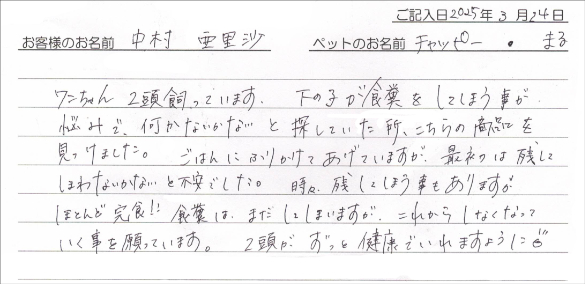 ご記入日2025年3月24日
お客様のお名前 中村 亜里沙 ペットのお名前 チャッピー・まる
ワンちゃん2頭飼っています。 下の子が食糞をしてしまう事が
悩みで、何かないかな と探していた所、こちらの商品を
見つけました。 ごはんにふりかけてあげていますが、最初は残して
しまわないかな と不安でした。 時々残してしまう事もありますが
ほとんど完食!! 食糞は、まだしてしまいますが、これからしなくなって
いく事を願っています。 2頭が ずっと健康でいれますように